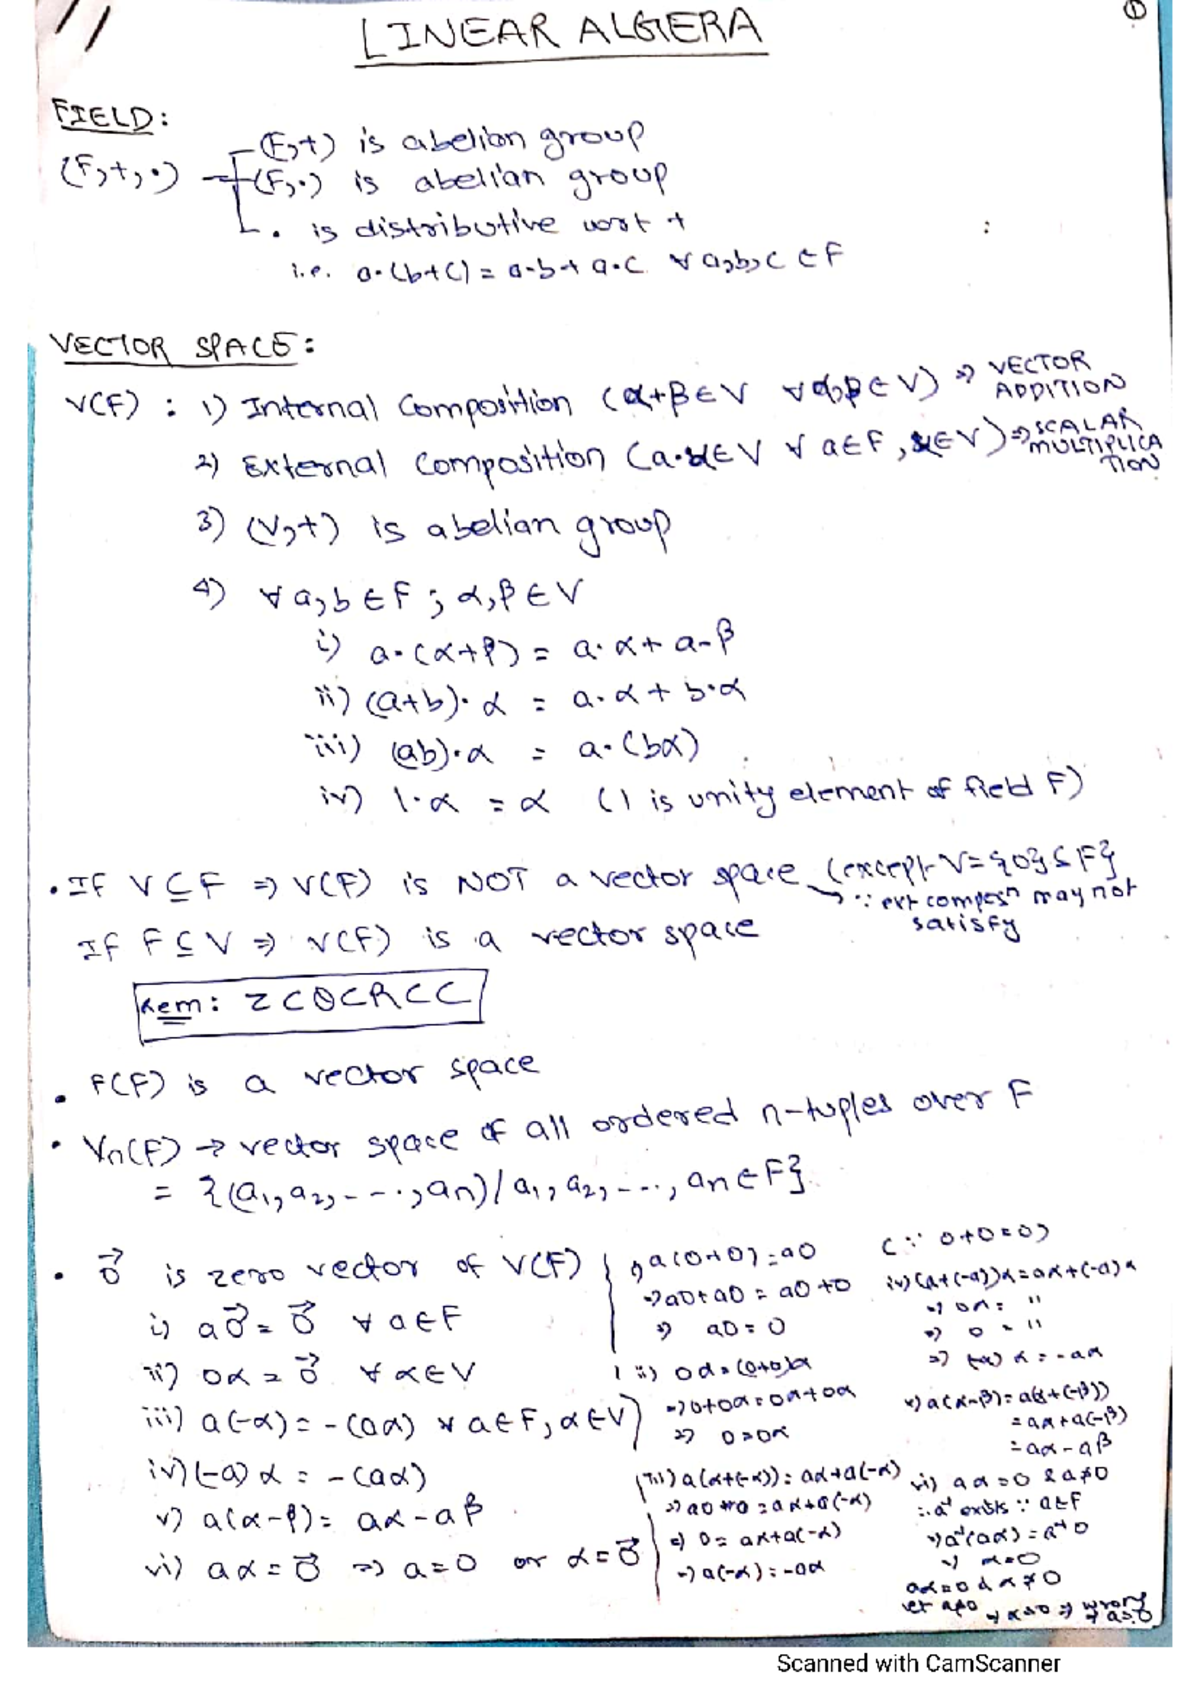 ①
LINEAR ALGEBRA
FIELD:
(F,+,·) (F,+) is abelian group
(F,·) is abelian group
· is distributive wrt +
i.e. a·(b+c) = a·b + a·c ∀ a,b,c ∈ F
VECTOR SPACE:
V(F) : 1) Internal Composition (α+β ∈ V ∀ α,β ∈ V) ⇒ VECTOR ADDITION
2) External Composition (a·α ∈ V ∀ a ∈ F, α ∈ V) ⇒ SCALAR MULTIPLICATION
3) (V,+) is abelian group
4) ∀ a,b ∈ F ; α,β ∈ V
i) a·(α+β) = a·α + a·β
ii) (a+b)·α = a·α + b·α
iii) (ab)·α = a·(bα)
iv) 1·α = α (1 is unity element of field F)
• If V ⊆ F ⇒ V(F) is NOT a vector space (except V={0} ⊆ F}
→ ∵ ext compesn may not satisfy
If F ⊆ V ⇒ V(F) is a vector space
Rem: Z⊂Q⊂R⊂C
• F(F) is a vector space
• Vn(F) → vector space of all ordered n-tuples over F
= {(a1, a2, ----, an) / a1, a2, ---, an ∈ F}
• 0⃗ is zero vector of V(F)
i) a0⃗ = 0⃗ ∀ a ∈ F
ii) 0α = 0⃗ ∀ α ∈ V
iii) a(-α) = -(aα) ∀ a ∈ F, α ∈ V
iv) (-a)α = -(aα)
v) a(α-β) = aα - aβ
vi) aα = 0⃗ ⇒ a=0 or α=0⃗
i) a(0+0) = a0 (∵ 0+0=0)
⇒ a0+a0 = a0+0
⇒ a0 = 0
ii) 0α = (0+0)α
⇒ 0+0α = 0α+0α
⇒ 0 = 0α
iii) a(α+(-α)) = aα+a(-α)
⇒ a0 = aα+a(-α)
⇒ 0 = aα+a(-α)
⇒ a(-α) = -aα
iv) (a+(-a))α = aα+(-a)α
⇒ 0α = "
⇒ 0 = "
⇒ (-a)α = -aα
v) a(α-β) = a(α+(-β))
= aα+a(-β)
= aα-aβ
vi) aα=0 & a≠0
∴ a⁻¹ exists ∵ a∈F
⇒ a⁻¹(aα) = a⁻¹0
⇒ α=0
aα=0 & α≠0
let a≠0
⇒ α=0 ⇒ wrong
⇒ a=0
Scanned with CamScanner